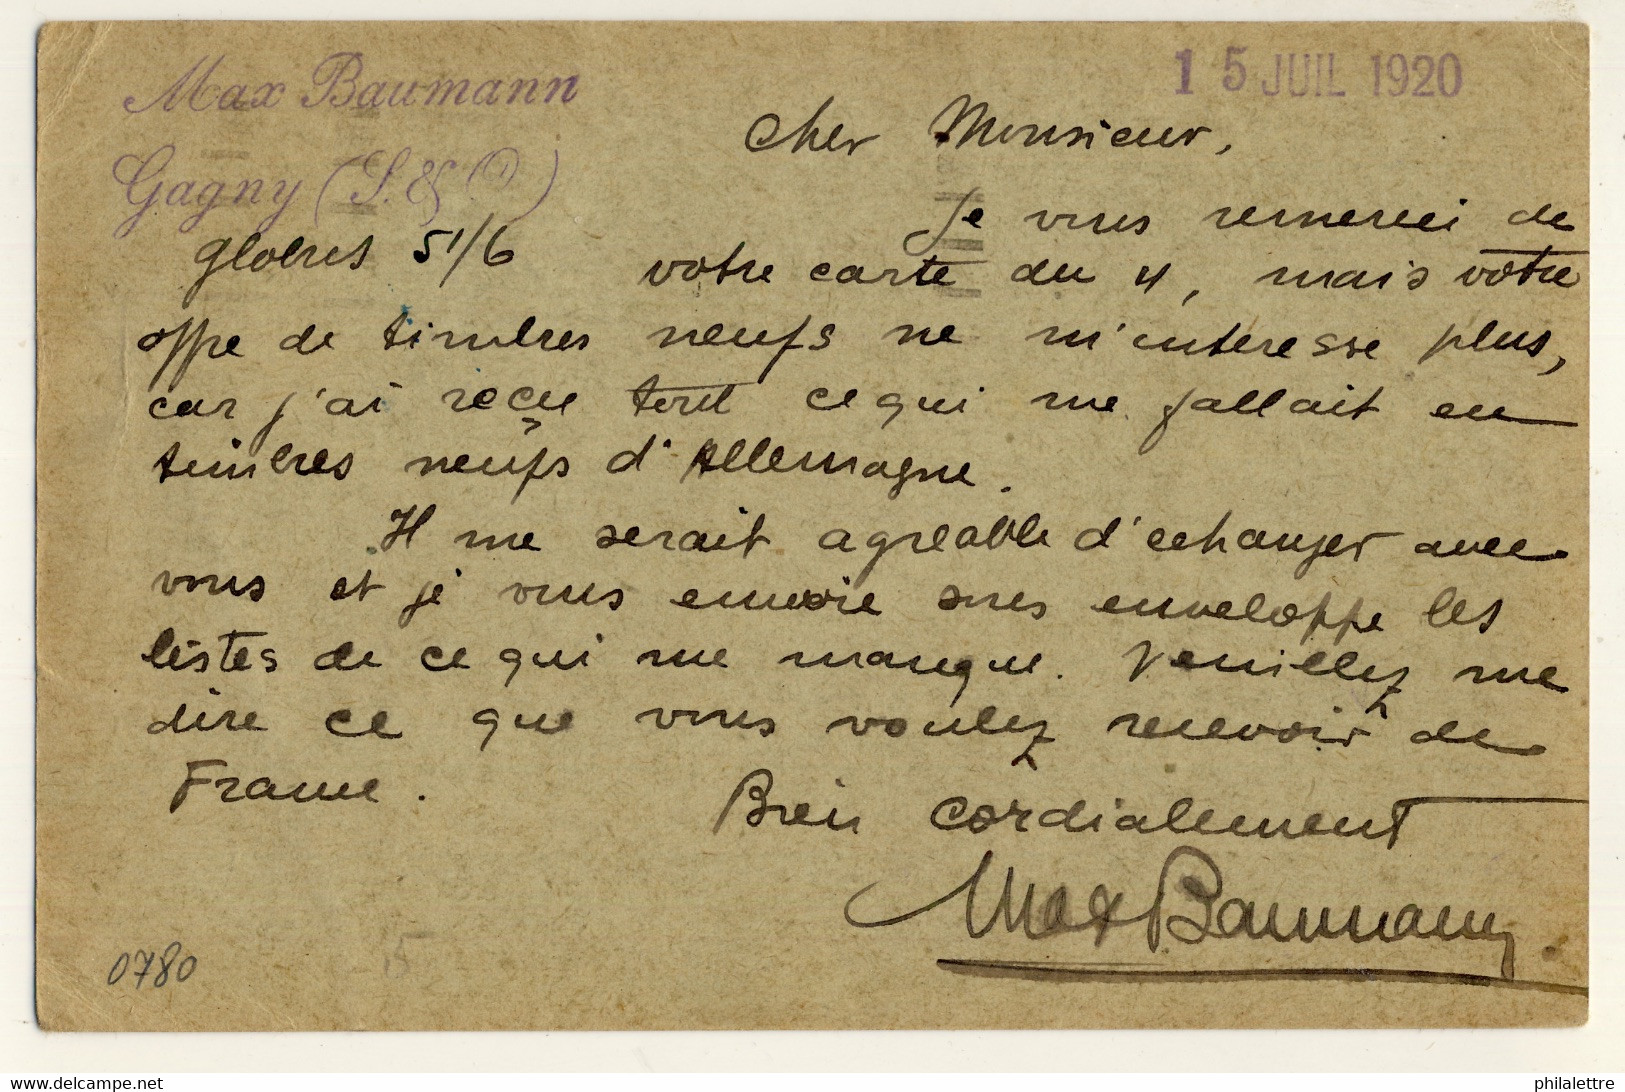 Max Baumann
Gagny (S. & O)
15 JUIL 1920
Cher Monsieur,
Je vous remercie de
votre carte du 4, mais votre
offre de timbres neufs ne m'interesse plus,
car j'ai reçu tout ce qui me fallait en
timbres neufs d'Allemagne.
Il me serait agreable d'echanger avec
vous et je vous envoie sous enveloppe les
listes de ce qui me manque. Veuillez me
dire ce que vous voulez recevoir de
France.
Bien cordialement
Max Baumann
51/6
0780
delcampe.net
philalettre